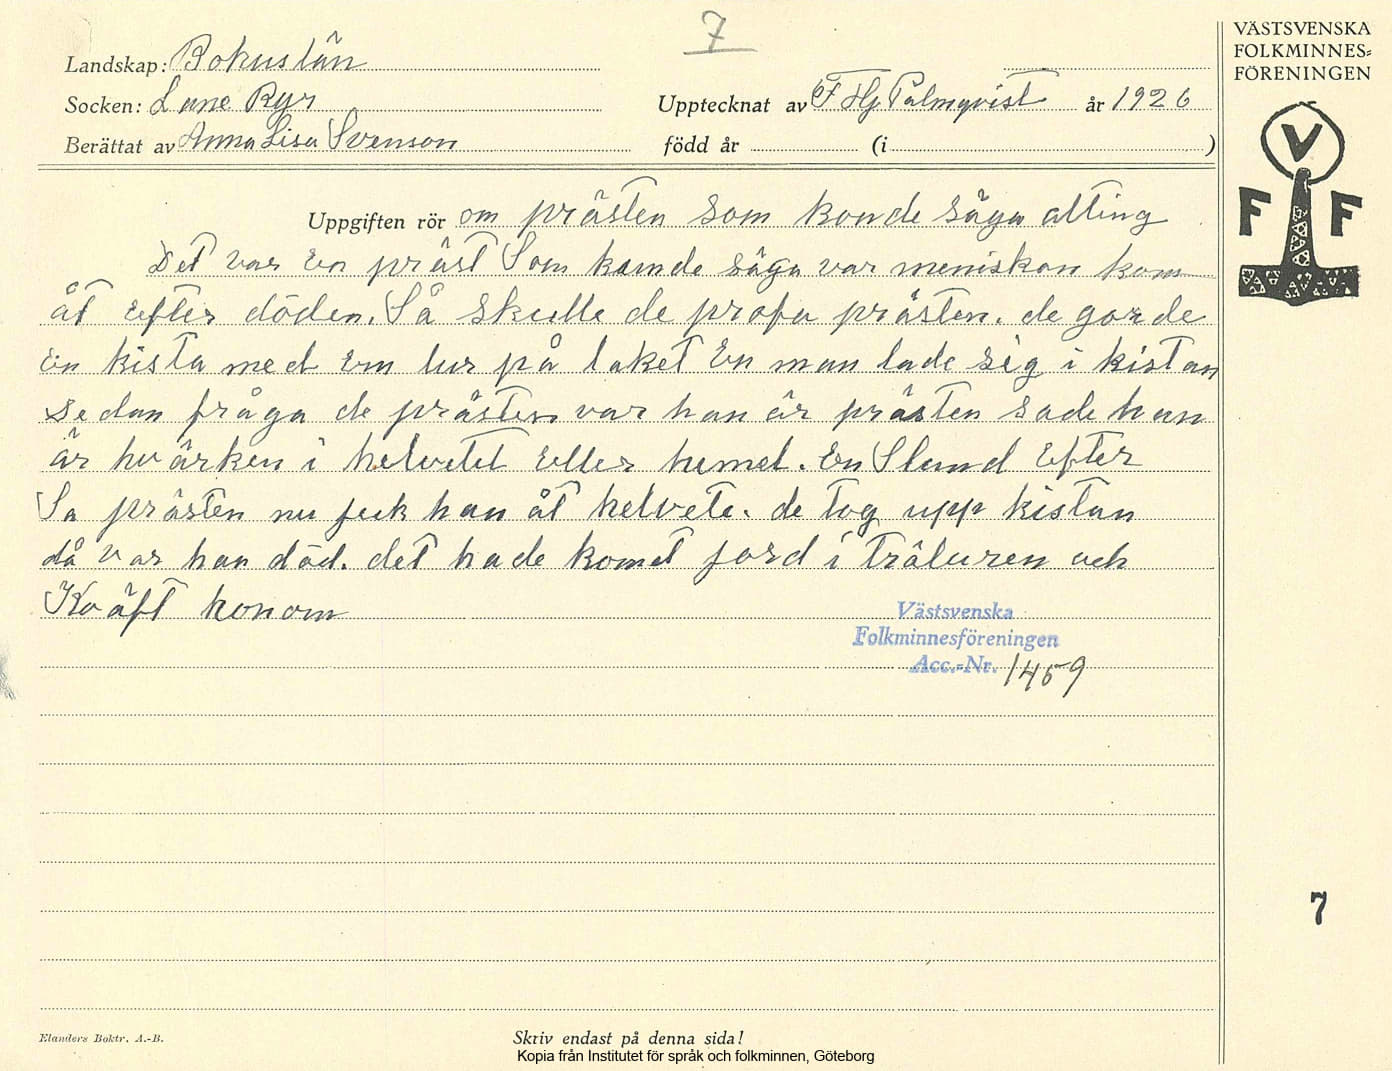 7
VÄSTSVENSKA
FOLKMINNES=
FÖRENINGEN
V
F F
Landskap: Bohuslän
Socken: Lane Ryr
Upptecknat av F Hj Palmqvist år 1926
Berättat av Anna Lisa Svenson
född år (i )
Uppgiften rör om prästen som konde säga alting
Det var En präst Som kunde säga var meniskan kom
åt Efter döden. Så Skulle de profa prästen. de gorde
En kista med Em lur på laket En man lade sig i kistan
Sedan fråga de prästen var han är prästen sade han
är hvärken i helvetet Eller himel. En Stund Efter
Sa prästen nu feck han åt helvete. de tog upp kistan
då var han död. det hade komet jord i träluren och
Kväft honom
Västsvenska
Folkminnesföreningen
Acc.-Nr. 1459
7
Elanders Boktr. A.-B.
Skriv endast på denna sida!
Kopia från Institutet för språk och folkminnen, Göteborg